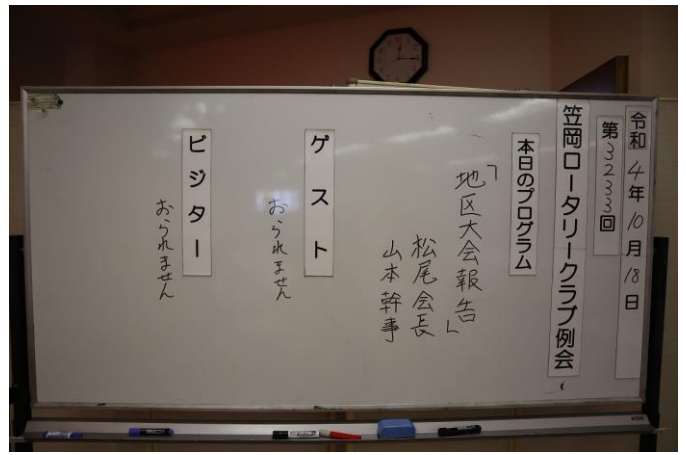 令和4年10月18日
第3233回
笠岡ロータリークラブ例会
本日のプログラム
「地区大会報告」
松尾会長
山本幹事
ゲスト
おられません
ビジター
おられません